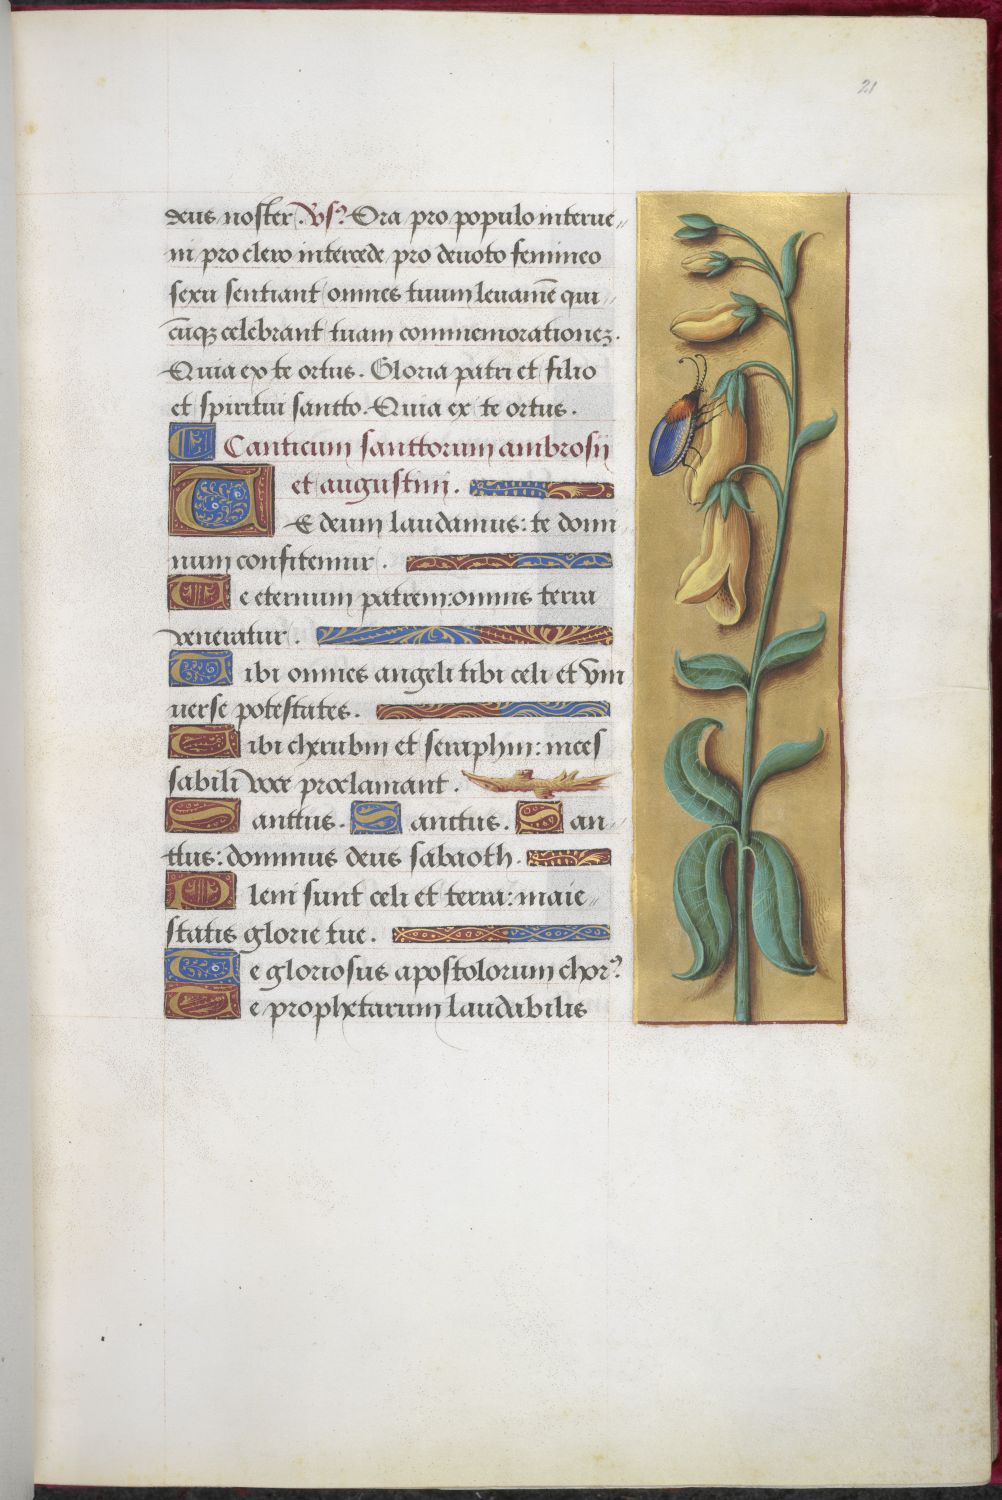 21
deus noster. Vs? Ora pro populo interue
ni pro clero intercede pro deuoto femineo
sexu sentiant omnes tuum leuamē qui
cūqꝫ celebrant tuam commemorationeꝫ.
Quia ex te ortus. Gloria patri et filio
et spiritui santto. Quia ex te ortus.
Canticum santtorum ambrosij
et augustini.
TE deum laudamus: te domi
num confitemur.
Te eternum patrem: omnis terra
veneratur.
Tibi omnes angeli tibi celi et vni
uerse potestates.
Tibi cherubin et seraphin: inces
sabili voce proclamant.
Sanctus. Sanctus. San
ctus: dominus deus sabaoth.
Pleni sunt celi et terra: maie
statis glorie tue.
Te gloriosus apostolorum chor?
Te prophetarum laudabilis